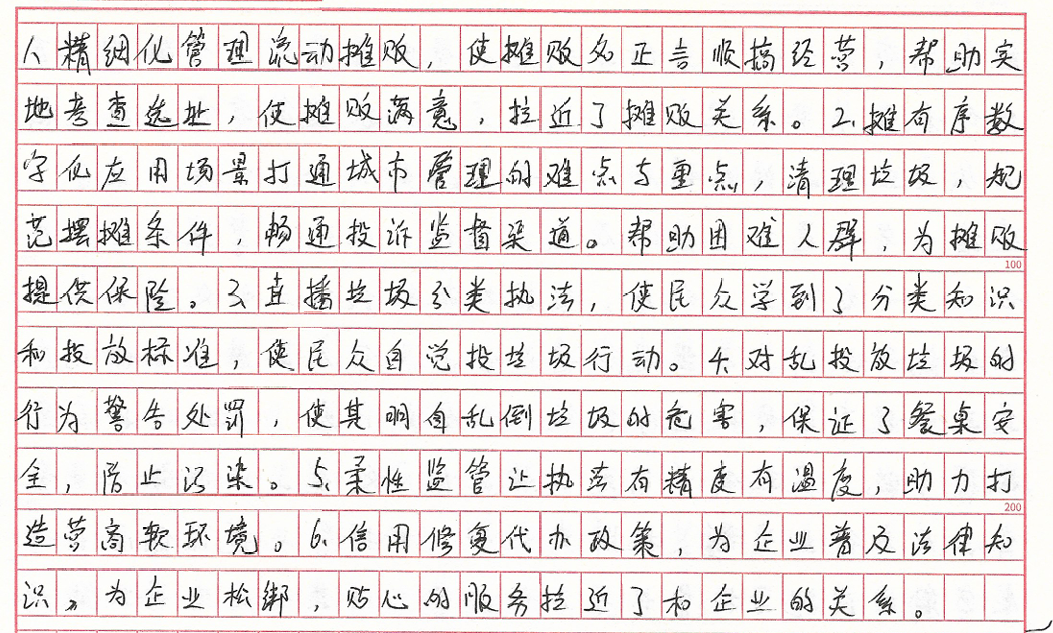 人精细化管理流动摊败，使摊败名正言顺搞经营，帮助实
地考查选址，使摊败满意，拉近了摊败关系。2.摊有序数
字化应用场景打通城市管理的难点与重点，清理垃圾，规
范摆摊条件，畅通投诉监督渠道。帮助困难人群，为摊败
100
提供保险。3.直播垃圾分类执法，使民众学到了分类知识
和投放标准，使民众自觉投垃圾行动。4.对乱投放垃圾的
行为警告处罚，使其明白乱倒垃圾的危害，保证了餐桌安
全，防止污染。5.柔性监管让执法有精度有温度，助力打
200
造营商软环境。6.信用修复代办政策，为企业普及法律知
识。为企业松绑，贴心的服务拉近了和企业的关系。